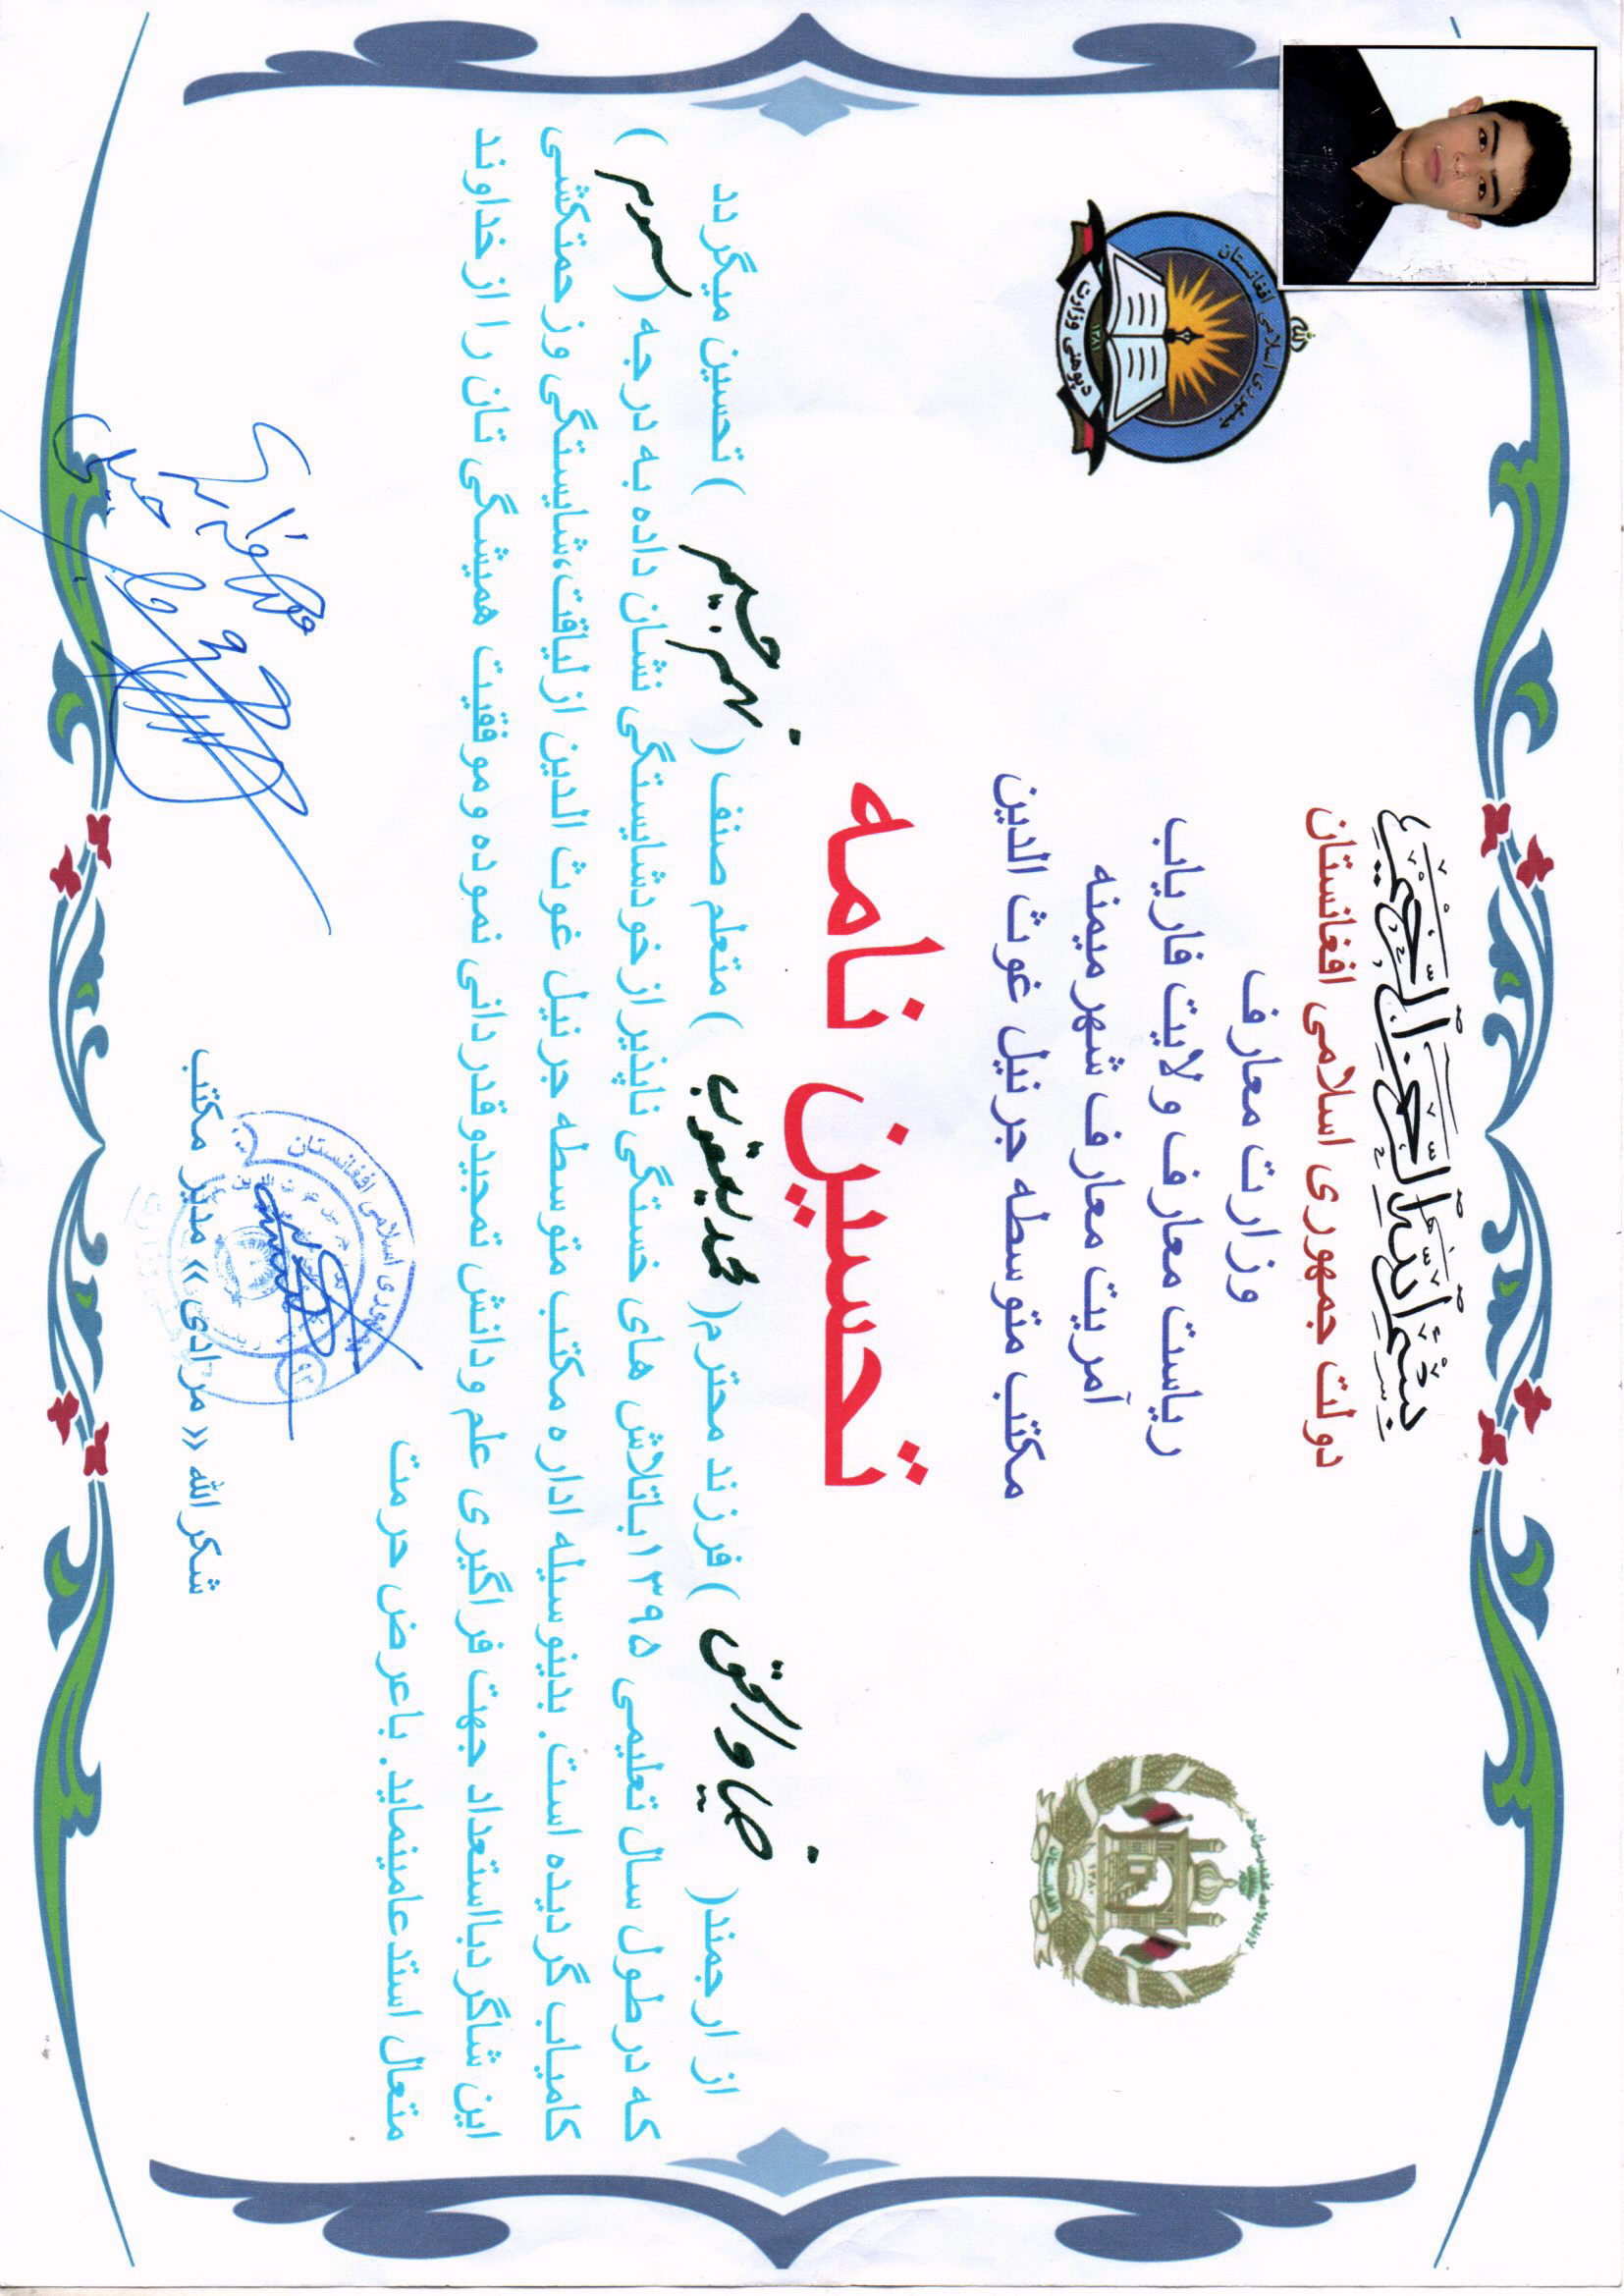 بِسْمِ اللهِ الرَّحْمنِ الرَّحِيمِ
دولت جمهوری اسلامی افغانستان
وزارت معارف
ریاست معارف ولایت فاریاب
آمریت معارف شهر میمنه
مکتب متوسطه جرنیل غوث الدین
جمهوری اسلامی افغانستان
دپوهنی وزارت
۱۳۸۱
تحسین نامه
از ارجمند( ) فرزند محترم( محمد یعقوب ) متعلم صنف ( ) تحسین میگردد
که درطول سال تعلیمی ۱۳۹۵ باتلاش های خستگی ناپذیر ازخودشایستگی نشان داده به درجه ( سوم )
کامیاب گردیده است. بدینوسیله اداره مکتب متوسطه جرنیل غوث الدین ازلیاقت،شایستگی وزحمتکشی
این شاگردبااستعداد جهت فراگیری علم ودانش تمجیدوقدردانی نموده وموفقیت همیشگی تان را ازخداوند
متعال استدعامینماید. باعرض حرمت
شکرالله «مرادی» مدیر مکتب
جمهوری اسلامی افغانستان